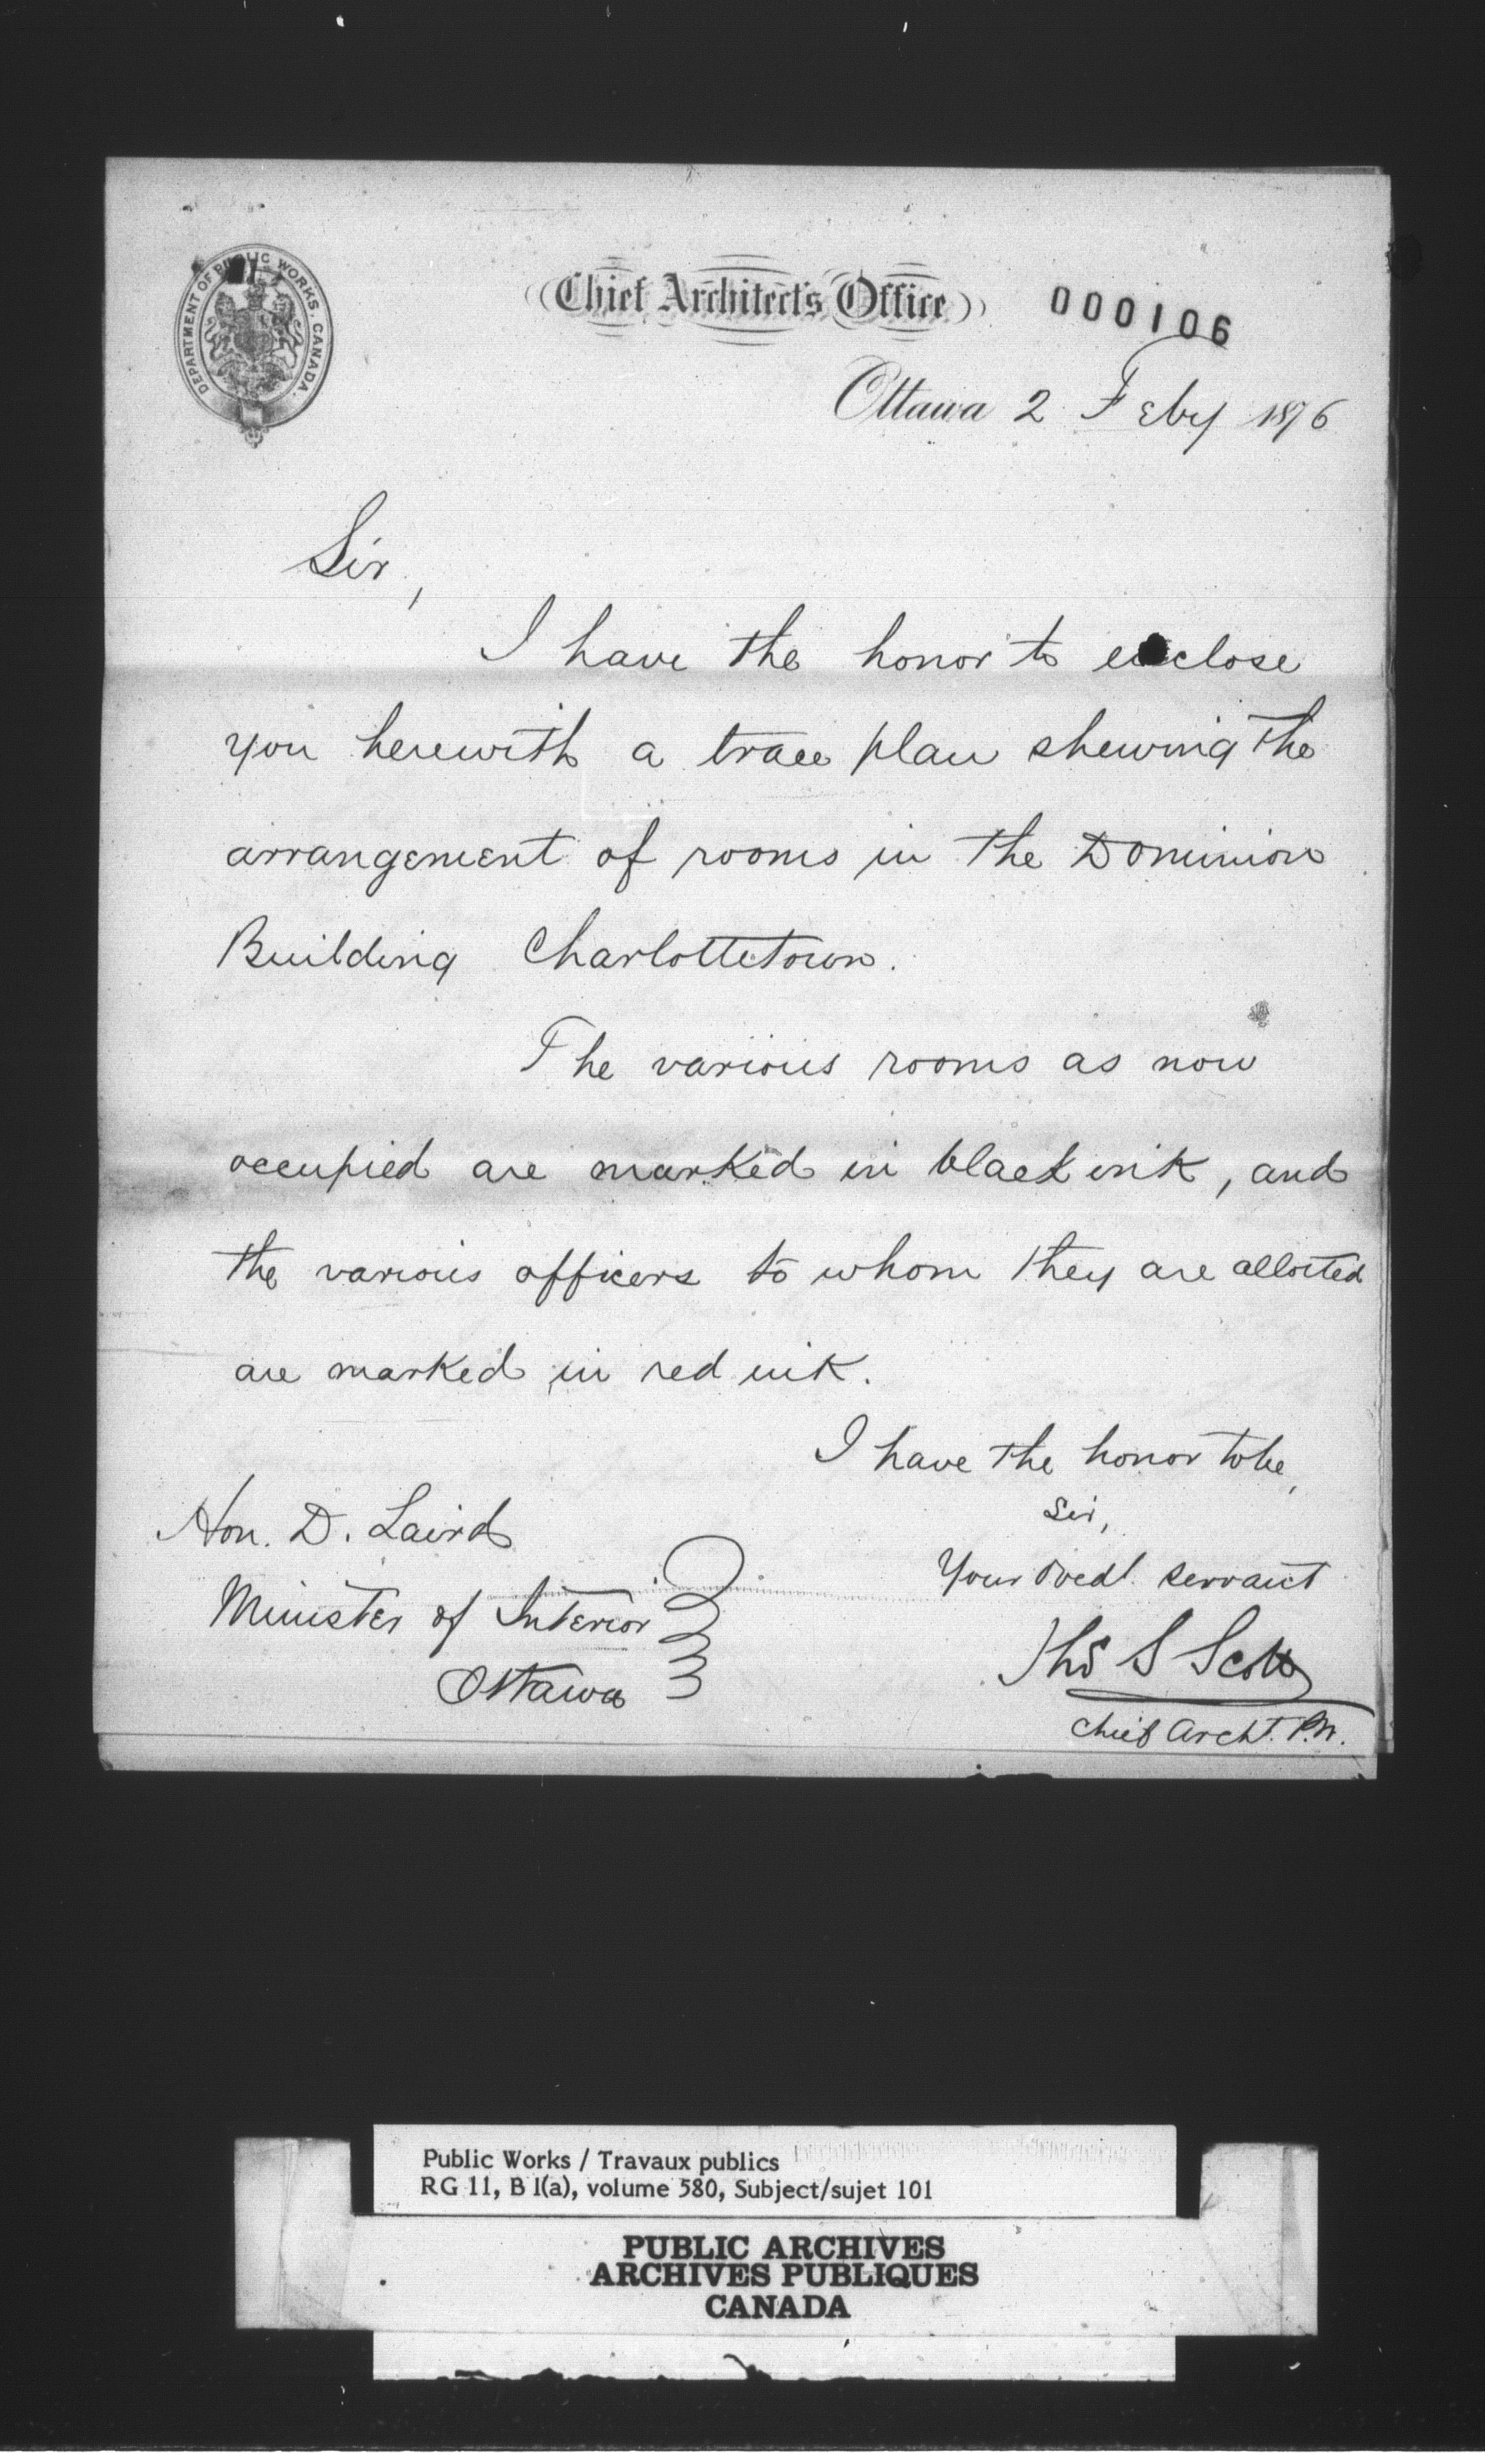 DEPARTMENT OF PUBLIC WORKS. CANADA.
Chief Architect's Office
000106
Ottawa 2 Feby 1876
Sir,
I have the honor to enclose
you herewith a trace plan shewing the
arrangement of rooms in the Dominion
Building Charlottetown.
The various rooms as now
occupied are marked in black ink, and
the various officers to whom they are allotted
are marked in red ink.
I have the honor to be,
Sir,
Your obedt. servant
Thos S Scott
Chief Archt. P.W.
Hon. D. Laird
Minister of Interior
Ottawa
Public Works / Travaux publics
RG 11, B 1(a), volume 580, Subject/sujet 101
PUBLIC ARCHIVES
ARCHIVES PUBLIQUES
CANADA